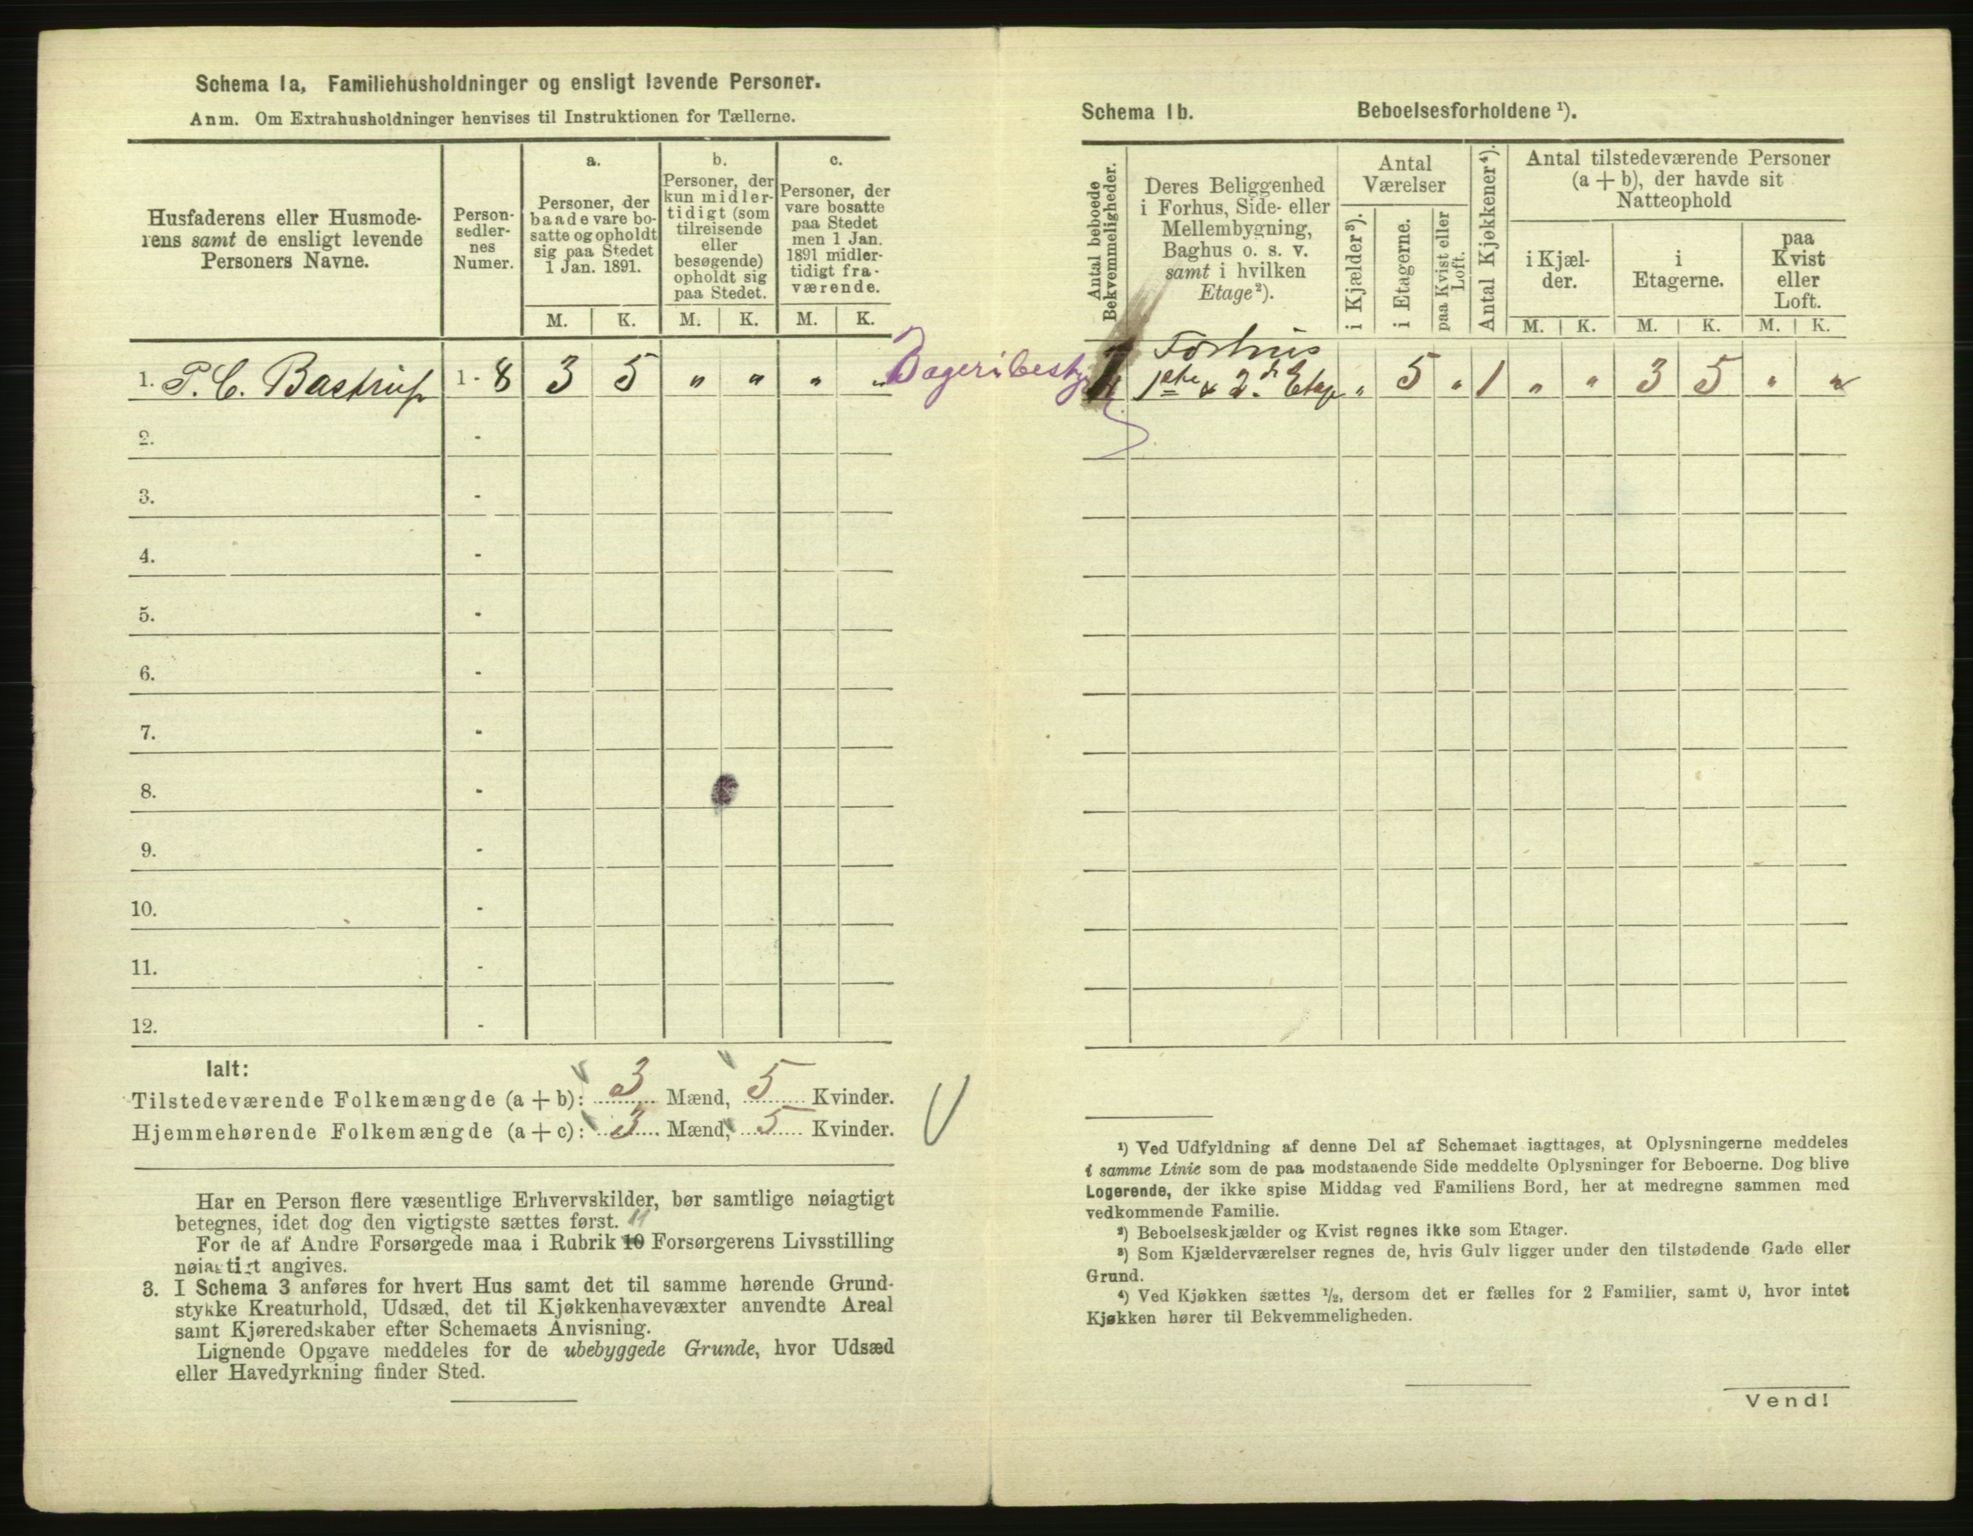 Schema 1a, Familiehusholdninger og ensligt levende Personer.
Anm. Om Extrahusholdninger henvises til Instruktionen for Tællerne.
Husfaderens eller Husmode-
rens samt de ensligt levende
Personers Navne.
Person-
sedler-
nes
Numer.
a.
Personer, der
baade vare bo-
satte og opholdt
sig paa Stedet
1 Jan. 1891.
b.
Personer, der
kun midler-
tidigt (som
tilreisende
eller
besøgende)
opholdt sig
paa Stedet.
c.
Personer, der
vare bosatte
paa Stedet
men 1 Jan.
1891 midler-
tidigt fra-
værende.
M. K. M. K. M. K.
1. P. C. Bastrup 1 - 8 3 5 „ „ „ „
2. -
3. -
4. -
5. -
6. -
7. -
8. -
9. -
10. -
11. -
12. -
Ialt:
Tilstedeværende Folkemængde (a + b): 3 Mænd, 5 Kvinder.
Hjemmehørende Folkemængde (a + c): 3 Mænd, 5 Kvinder.
Har en Person flere væsentlige Erhvervskilder, bør samtlige nøiagtigt
betegnes, idet dog den vigtigste sættes først. 11
For de af Andre Forsørgede maa i Rubrik 10 Forsørgerens Livsstilling
nøiagtigt angives.
3. I Schema 3 anføres for hvert Hus samt det til samme hørende Grund-
stykke Kreaturhold, Udsæd, det til Kjøkkenhavevæxter anvendte Areal
samt Kjøreredskaber efter Schemaets Anvisning.
Lignende Opgave meddeles for de ubebyggede Grunde, hvor Udsæd
eller Havedyrkning finder Sted.
Schema 1b. Beboelsesforholdene ¹).
Antal beboede
Bekvemmeligheder.
Deres Beliggenhed
i Forhus, Side- eller
Mellembygning,
Baghus o. s. v.
samt i hvilken
Etage²).
Antal
Værelser
i Kjælder³).
i Etagerne.
paa Kvist eller
Loft.
Antal Kjøkkener⁴).
Antal tilstedeværende Personer
(a + b), der havde sit
Natteophold
i Kjæl-
der.
i
Etagerne.
paa
Kvist
eller
Loft.
M. K. M. K. M. K.
Bageribesty
Forhus
1 1ste & 2d. Etage „ 5 „ 1 „ „ 3 5 „ „
¹) Ved Udfyldning af denne Del af Schemaet iagttages, at Oplysningerne meddeles
i samme Linie som de paa modstaaende Side meddelte Oplysninger for Beboerne. Dog blive
Logerende, der ikke spise Middag ved Familiens Bord, her at medregne sammen med
vedkommende Familie.
²) Beboelseskjælder og Kvist regnes ikke som Etager.
³) Som Kjælderværelser regnes de, hvis Gulv ligger under den tilstødende Gade eller
Grund.
⁴) Ved Kjøkken sættes ½, dersom det er fælles for 2 Familier, samt 0, hvor intet
Kjøkken hører til Bekvemmeligheden.
Vend!